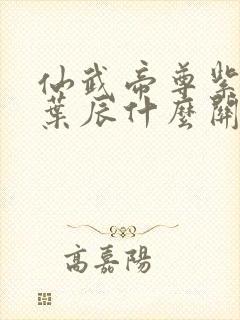 仙武帝尊紫
葉辰什麼關
高嘉陽